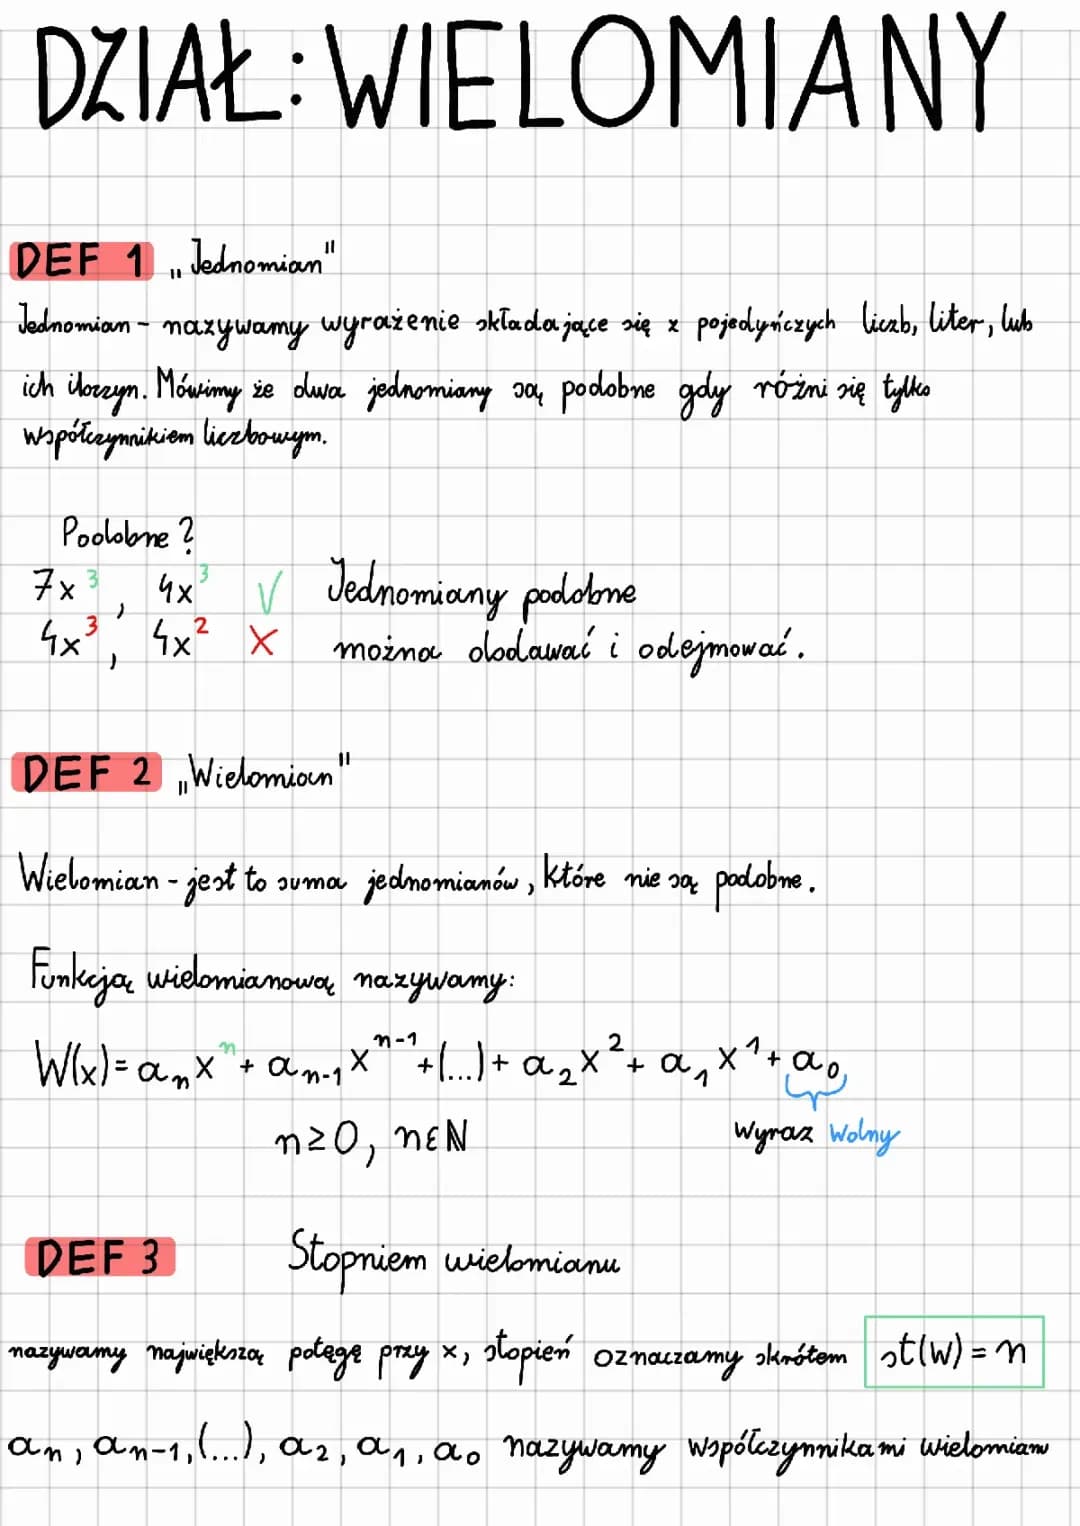 DZIAŁ: WIELOMIANY
DEF 1 „Jednomian"
Jednomian - nazywamy wyrażenie składające się z pojedyńczych liczb, liter, lub
ich iloczyn. Mówimy że dwa jednomiany są podobne gdy różni się tylko
współczynnikiem liczbowym.
Podobne?
7x³, 4x³ √ Jednomiany podobne
4x³, 4x² X można dodawać i odejmować.
DEF 2 „Wielomian"
Wielomian - jest to suma jednomianów, które nie są podobne.
Funkcją wielomianową nazywamy:
W(x) = aₙxⁿ + aₙ₋₁xⁿ⁻¹ + (...) + a₂x² + a₁x¹ + a₀
n ≥ 0, n ∈ ℕ wyraz wolny
DEF 3 Stopniem wielomianu
nazywamy największą potęgę przy x, stopień oznaczamy skrótem st(w) = n
aₙ, aₙ₋₁, (...), a₂, a₁, a₀ nazywamy współczynnikami wielomianu